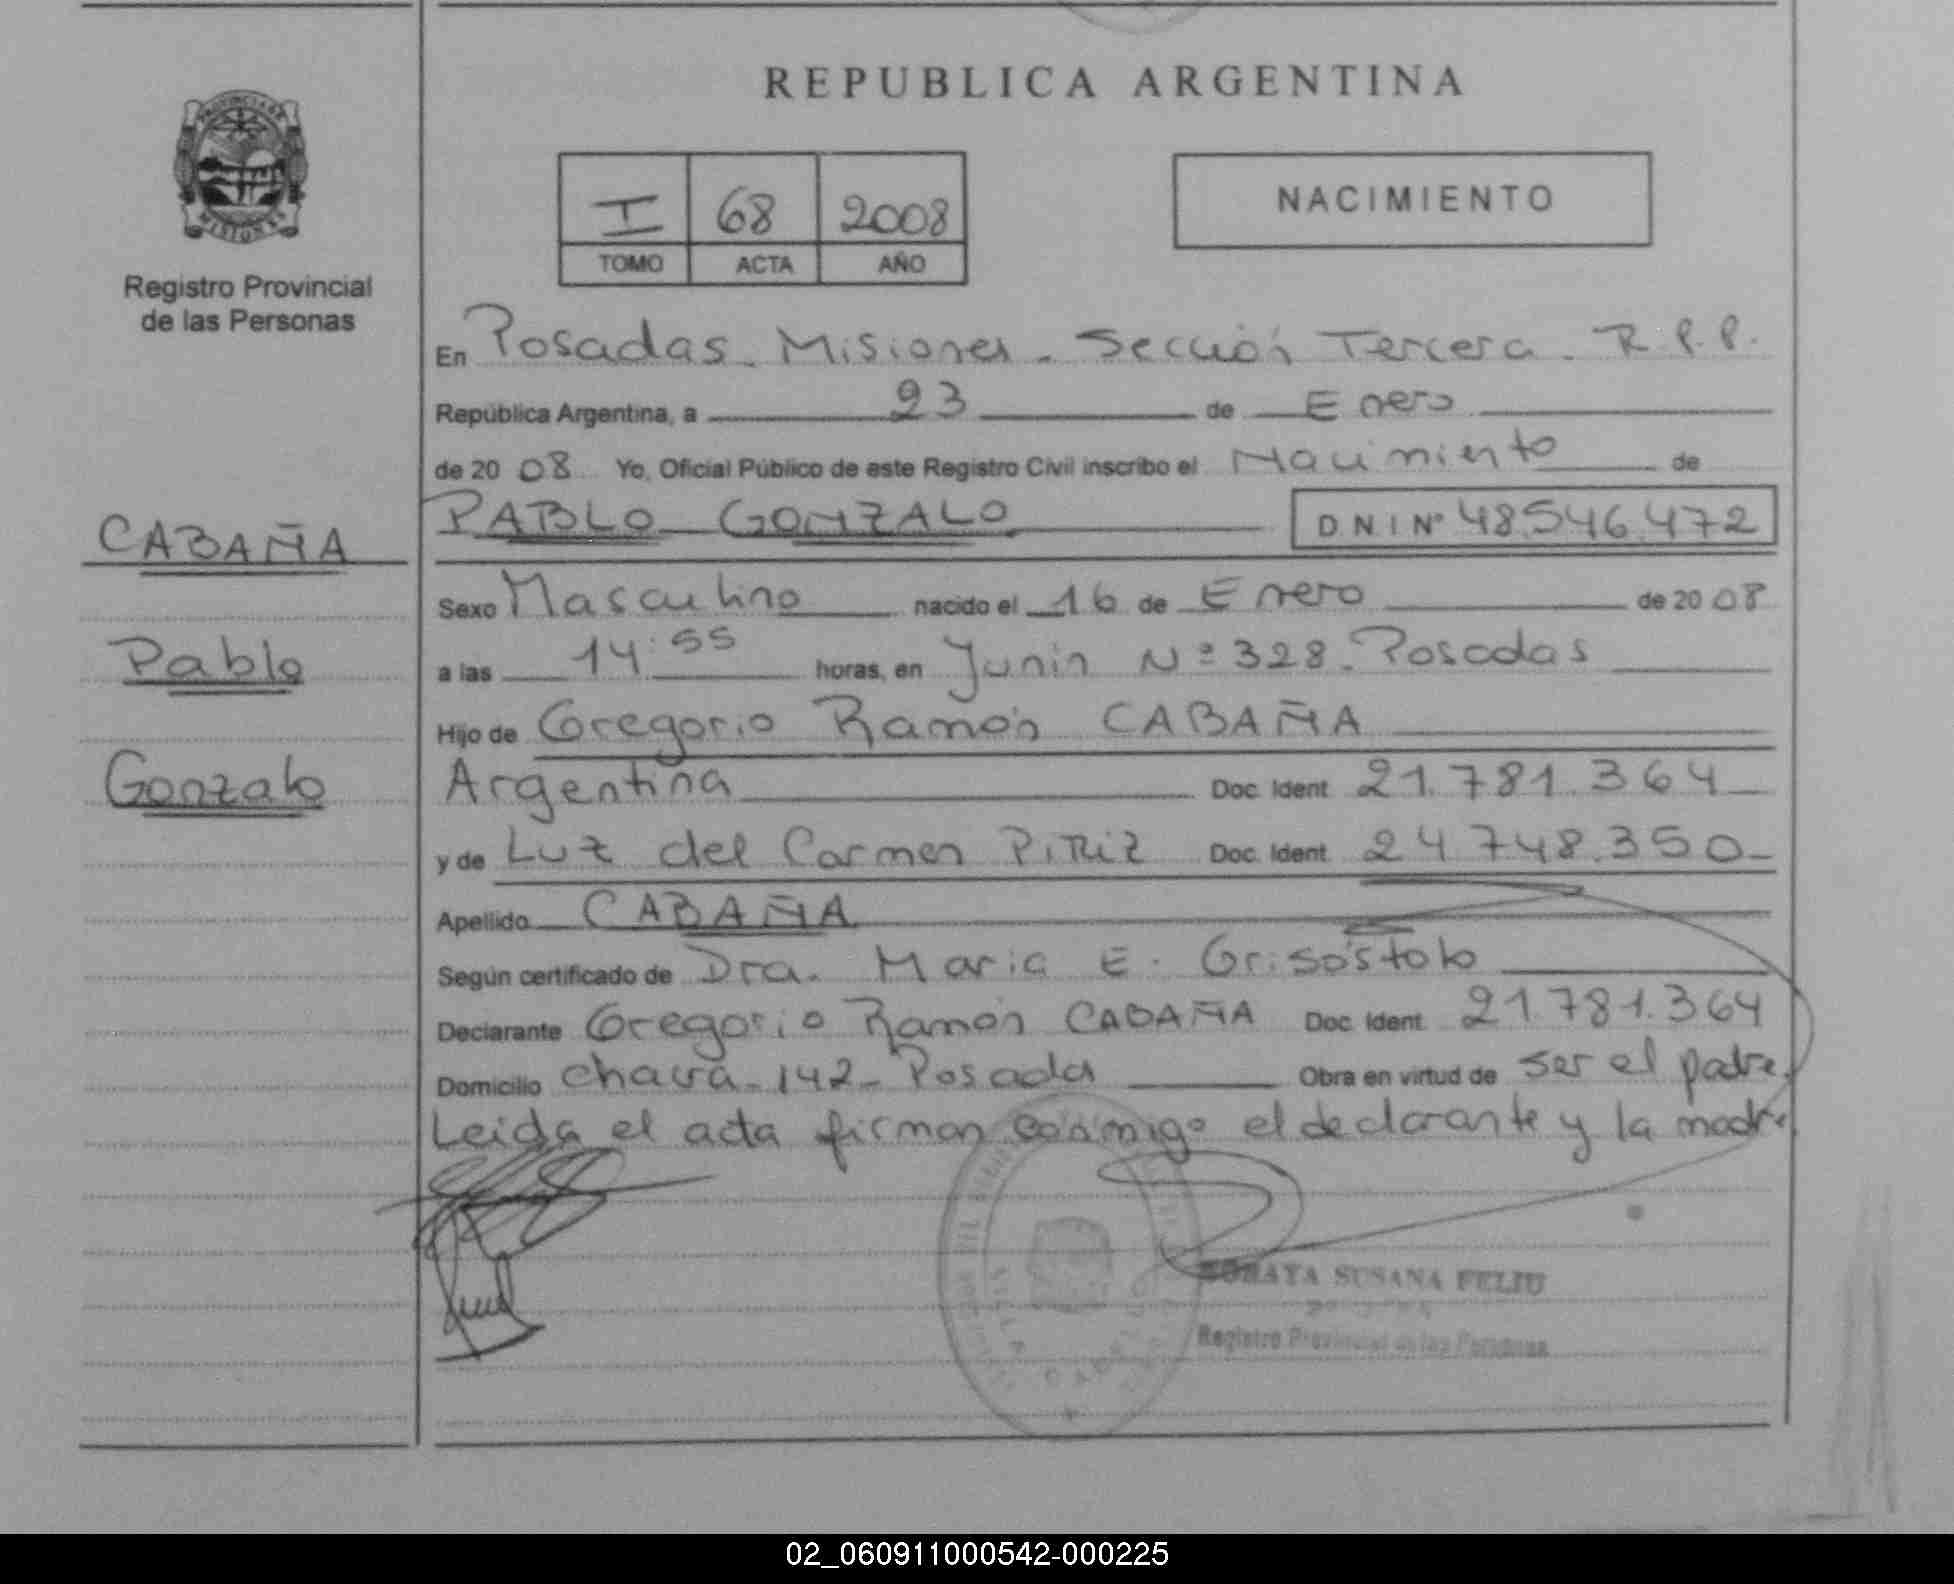 REPUBLICA ARGENTINA
PROVINCIA DE
MISIONES
Registro Provincial
de las Personas
I 68 2008
TOMO ACTA AÑO
NACIMIENTO
En Posadas. Misiones. Sección Tercera. R.P.P.
República Argentina, a 23 de Enero
de 20 08 Yo, Oficial Público de este Registro Civil inscribo el Nacimiento de
PABLO GONZALO D N I Nº 48.546.472
CABAÑA
Pablo
Gonzalo
Sexo Masculino nacido el 16 de Enero de 20 08
a las 14:55 horas, en Junin Nº 328. Posadas
Hijo de Gregorio Ramón CABAÑA
Argentina Doc. Ident. 21.781.364
y de Luz del Carmen PiRiz Doc. Ident. 24.748.350
Apellido CABAÑA
Según certificado de Dra. Maria E. Grisóstolo
Declarante Gregorio Ramón CABAÑA Doc. Ident. 21.781.364
Domicilio 142 - Posadas Obra en virtud de ser el padre.
Leida el acta firman conmigo el declarante y la madre.
SUSANA FELIU
Registro Provincial de las Personas
02_060911000542-000225